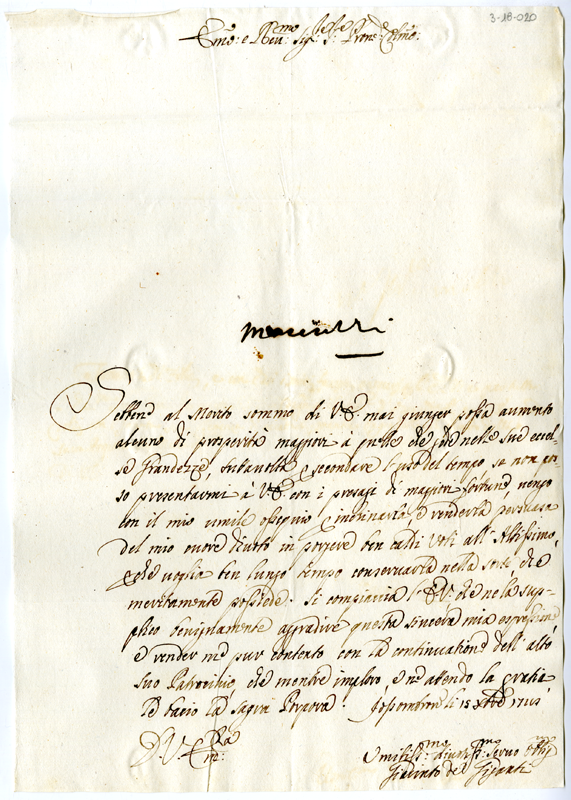 3-18-020
Emo: e Reu:mo Sig:re Pron:e Colmo:
Sebbene al Merito sommo di V.E. mai giunger possa aumento
alcuno di prosperità maggiori à quelle che gode nelle sue eccel-
se Grandezze, tuttavolta secondare l'uso del tempo se non pos-
so presentarmi à V.E. con i presagi di maggiori fortune, vengo
con il mio umile ossequio inchinarla, e renderla persuasa
del mio cuore divoto in porgere ben caldi Voti all'Altissimo,
che voglia ben lungo tempo conservarla nella sorti che
meritamente possiede. Si compiaccia l'E.V. che ne la sup-
plico benignamente aggradire questa sincera mia espressione
e render me pur contento con la continuatione dell'alto
suo Patrocinio che mentre imploro e ne attendo la gratia
le bacio la sagra Porpora. li 15 Xbre
D V. Em:za
Umiliss:mo divotiss:mo servo obl:mo
Giacinto del Giganti